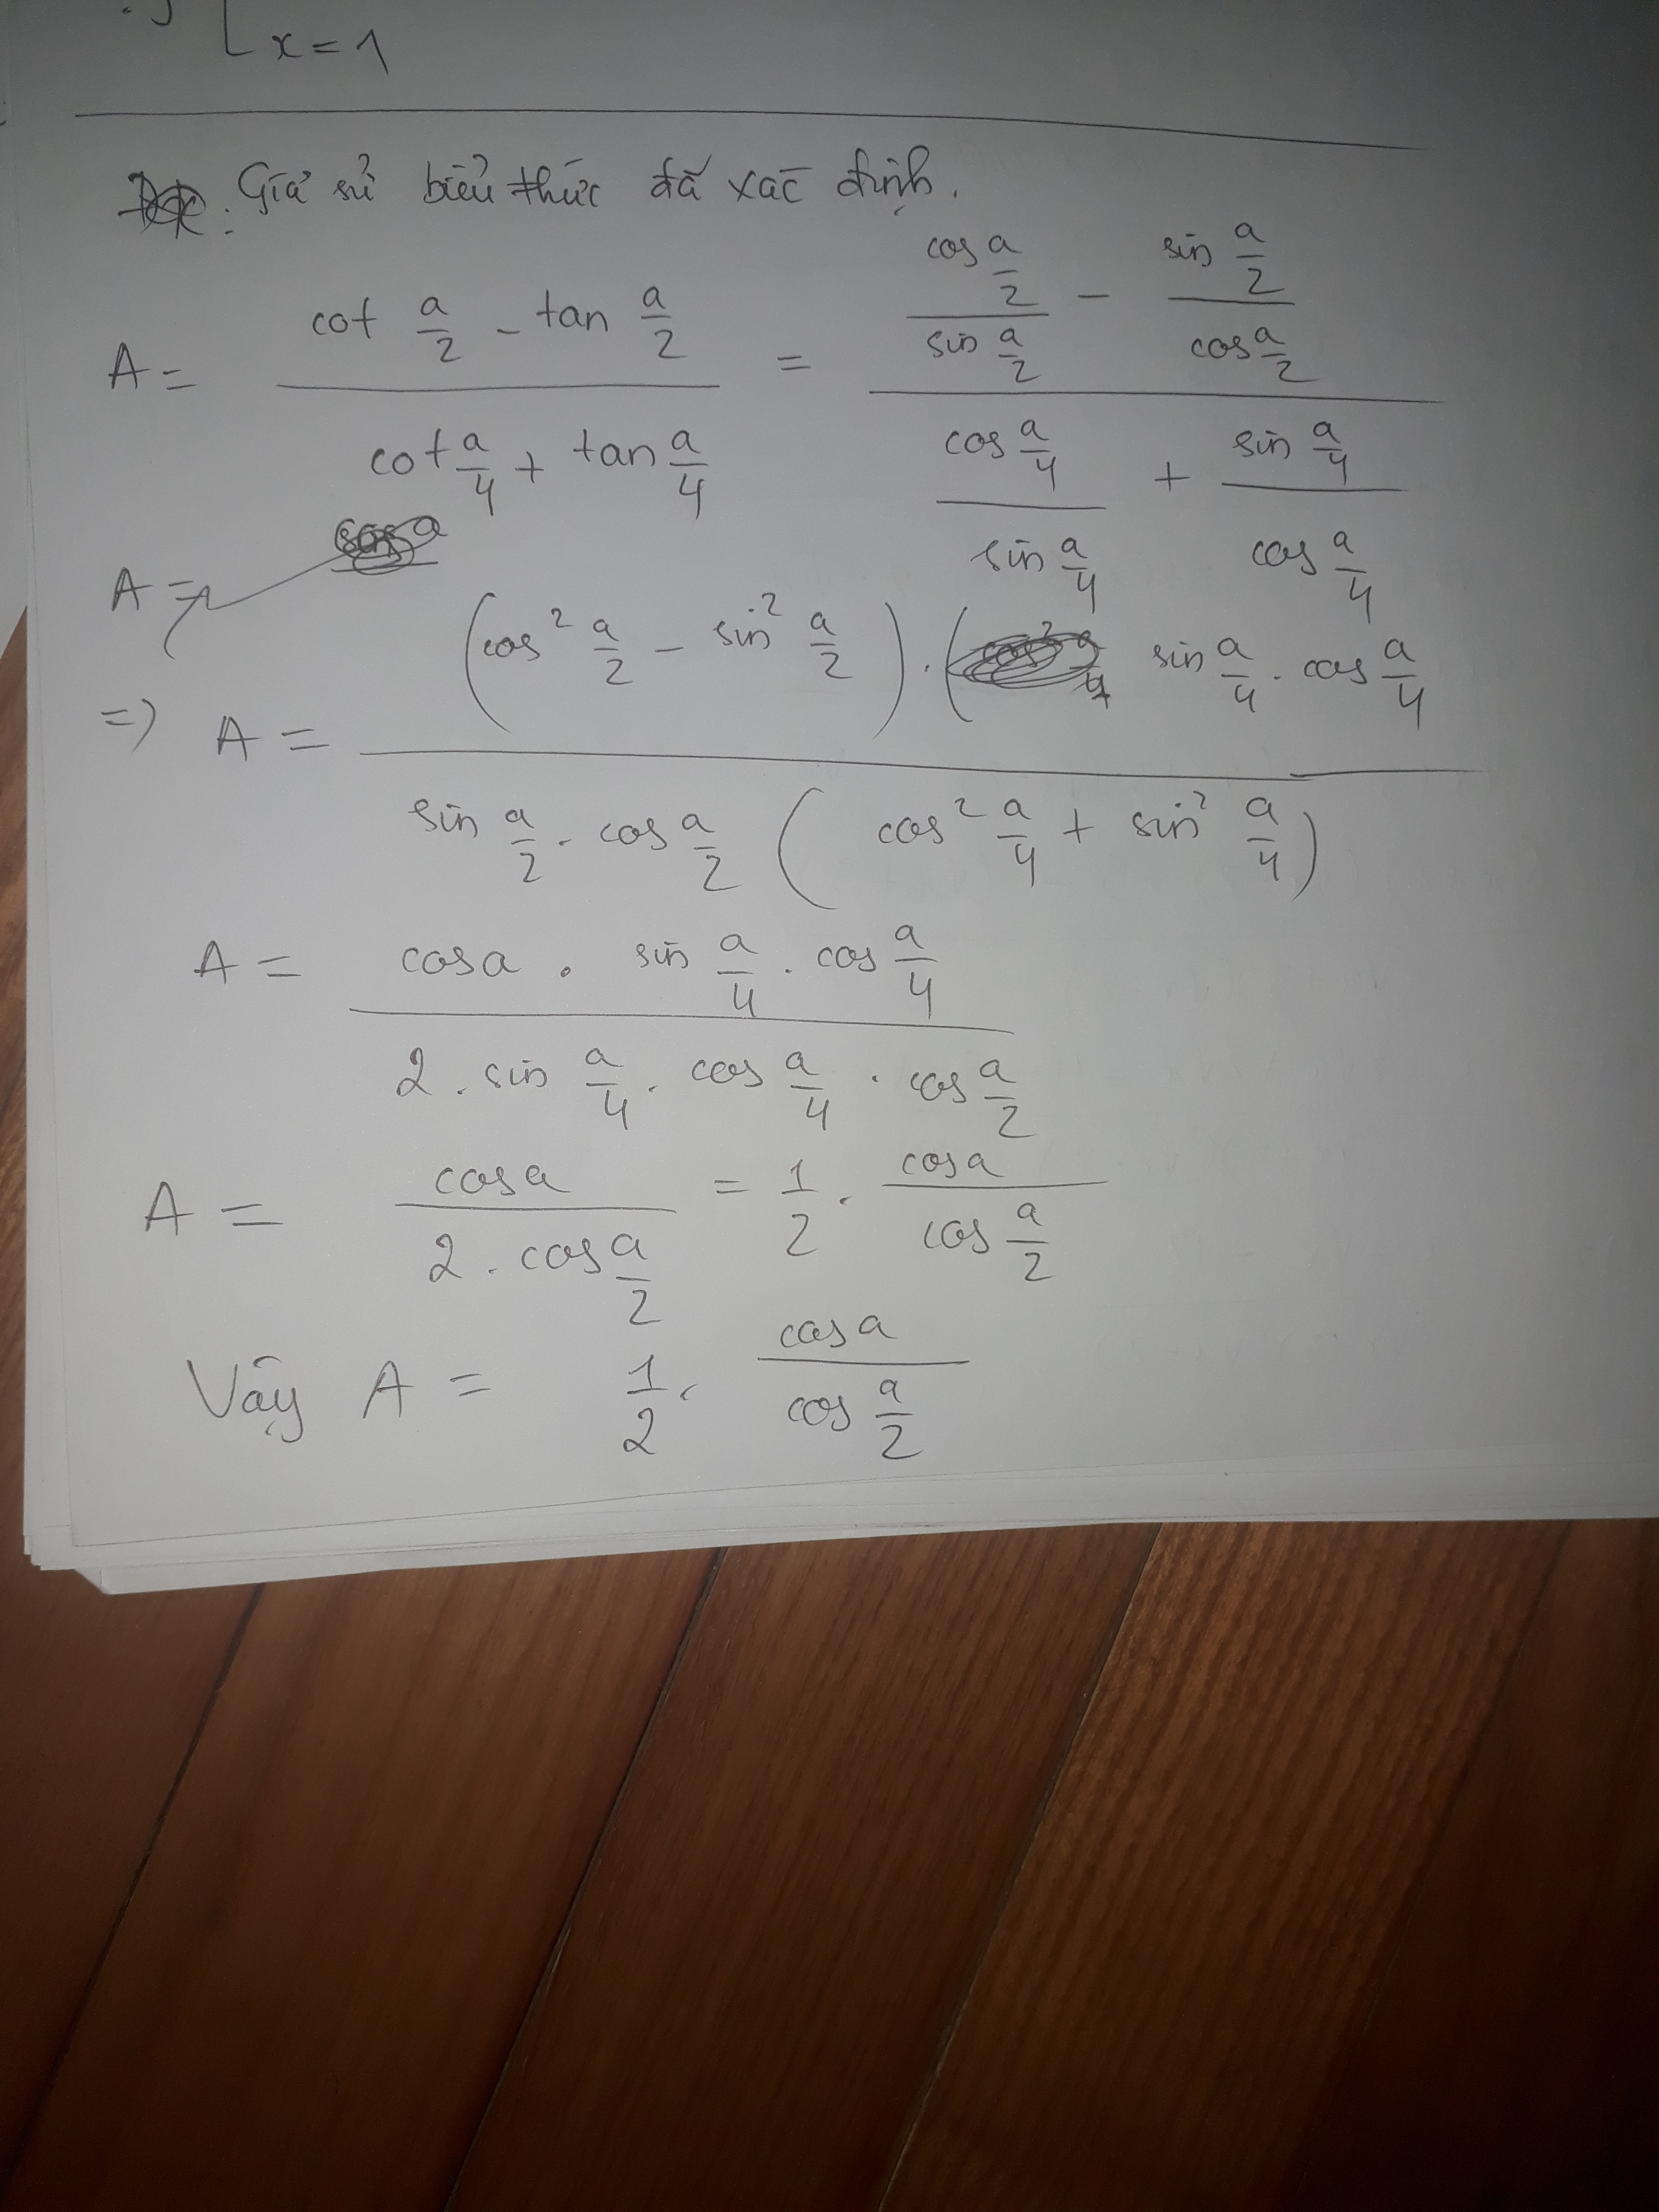 [ x = 1
: Giả sử biểu thức đã xác định.
A = (cot a/2 - tan a/2) / (cot a/4 + tan a/4) = (cos a/2 / sin a/2 - sin a/2 / cos a/2) / (cos a/4 / sin a/4 + sin a/4 / cos a/4)
A =
=> A = (cos² a/2 - sin² a/2) . ( sin a/4 . cos a/4 / sin a/2 . cos a/2 (cos² a/4 + sin² a/4)
A = cos a . sin a/4 . cos a/4 / 2 . sin a/4 . cos a/4 . cos a/2
A = cos a / 2 . cos a/2 = 1/2 . cos a / cos a/2
Vậy A = 1/2 . cos a / cos a/2